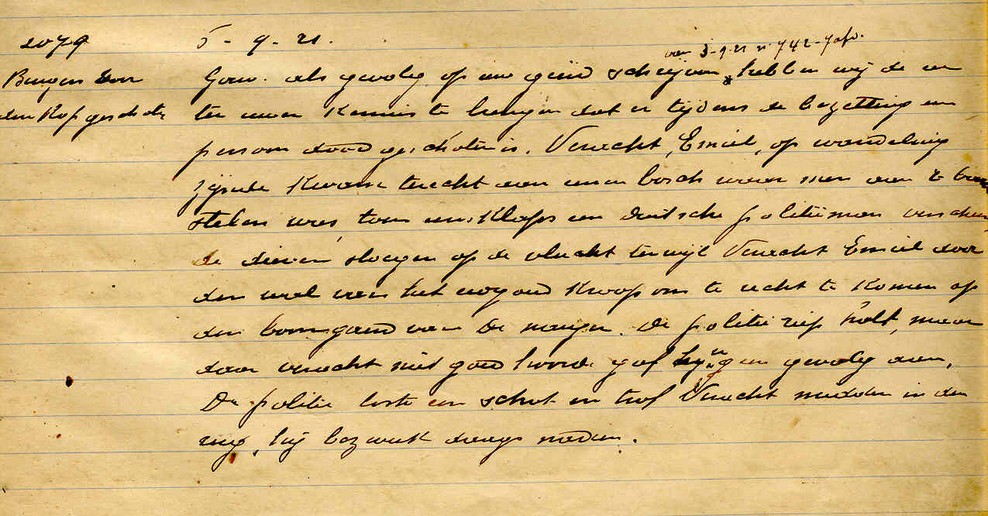 2079 5-9-21.
van 3-9-21 n° 742-7 afd.
Burgers door Gouv. als gevolg op uw geëerd schrijven hebben wij de eer
den Kop geschoten ter uwer kennis te brengen dat er tijdens de bezetting een
persoon dood geschoten is. Verecht, Emiel, op wandeling
zijnde kwam terecht aan eenen bosch waar men aan 't
stelen was, toen eensklaps een duitsche politieman verscheen
de dieven sloegen op de vlucht terwijl Verecht Emiel door
den wal van het kroop om te recht te komen op
den boomgaard van De politie riep halt, maar
daar verecht niet goed hoorde gaf hij er geen gevolg aan.
De politie loste een schot en trof Verecht midden in den
rug, hij bezweek daags nadien.